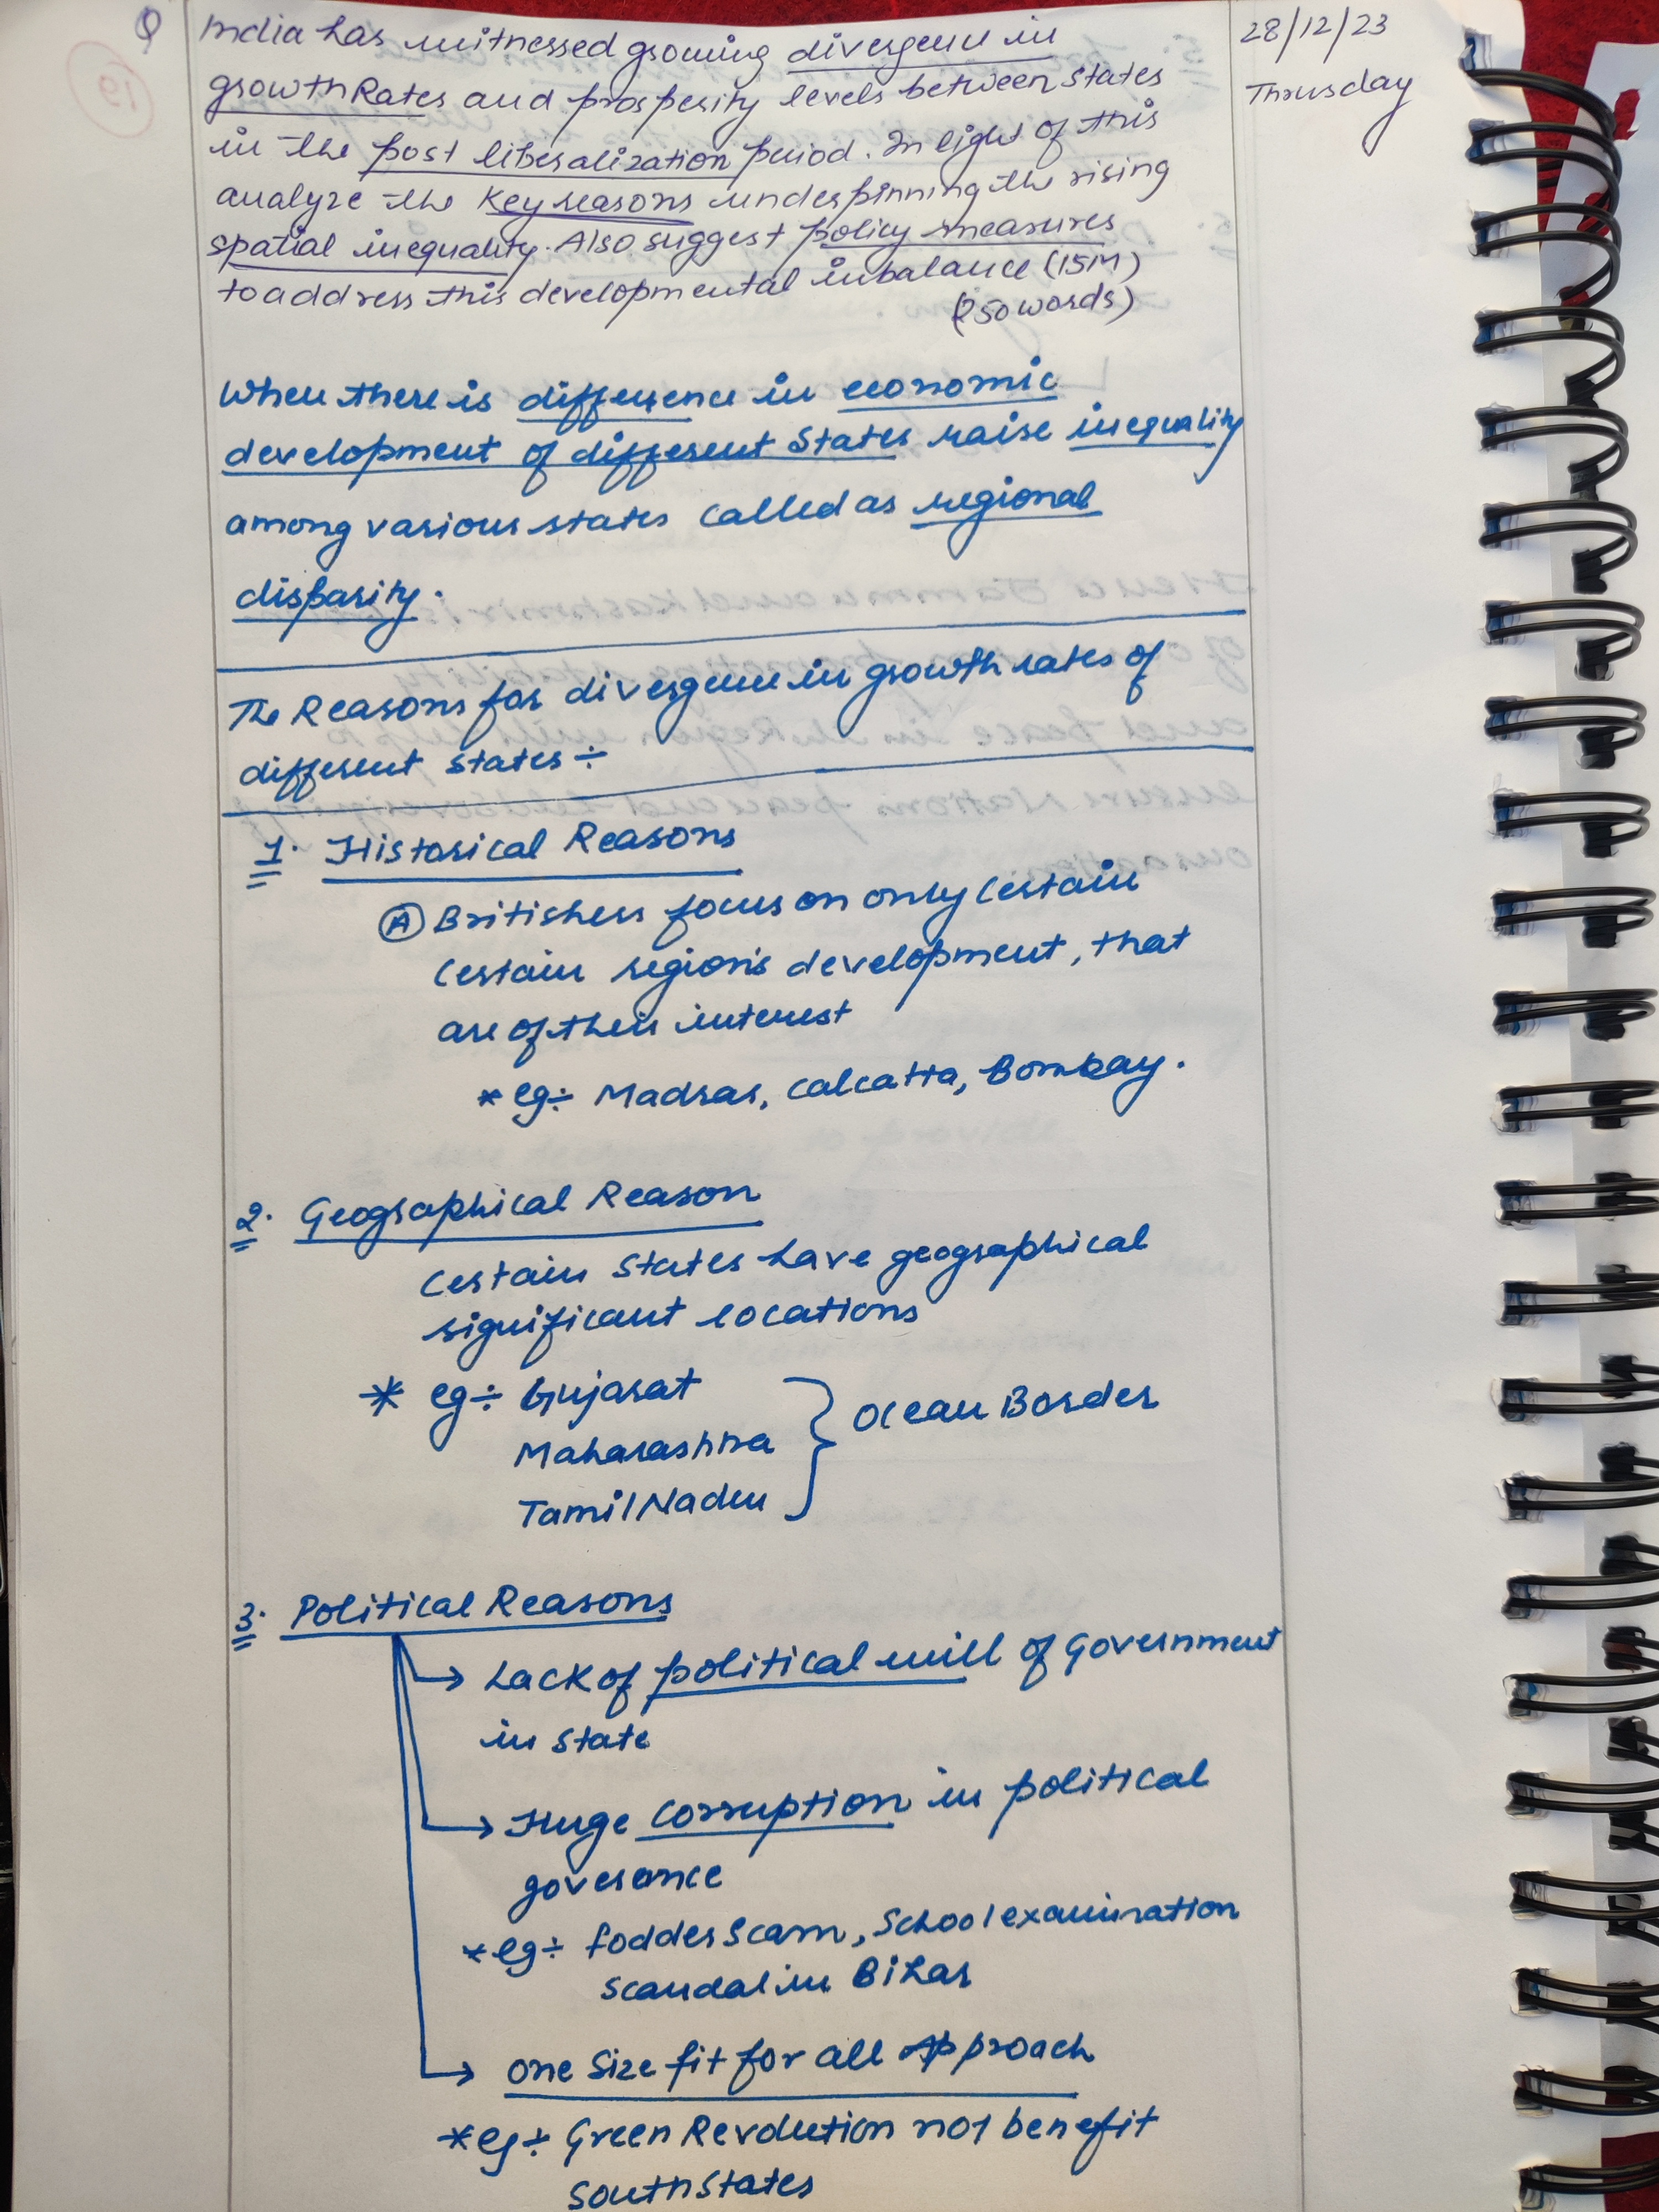 Q India has witnessed growing divergence in
growth Rates and prosperity levels between states
in the post liberalization period. In light of this
analyze the key reasons underpinning the rising
spatial inequality. Also suggest policy measures
to address this developmental inbalance (15M)
(250 words)
28/12/23
Thrusday
19
When there is difference in economic
development of different States raise inequality
among various states called as regional
disparity.
The Reasons for divergence in growth rates of
different states ÷
1. Historical Reasons
(A) Britishers focus on only certain
certain region's development, that
are of their interest
* eg ÷ Madras, Calcatta, Bombay.
2. Geographical Reason
Certain States have geographical
significant locations
* eg ÷ Gujarat
Maharashtra
Tamil Nadu
Ocean Border
3. Political Reasons
→ Lack of political will of Government
in state
→ Huge corruption in political
goverance
* eg ÷ fodder scam, School examination
scandal in Bihar
→ One Size fit for all Approach
* eg ÷ Green Revolution not benefit
South States